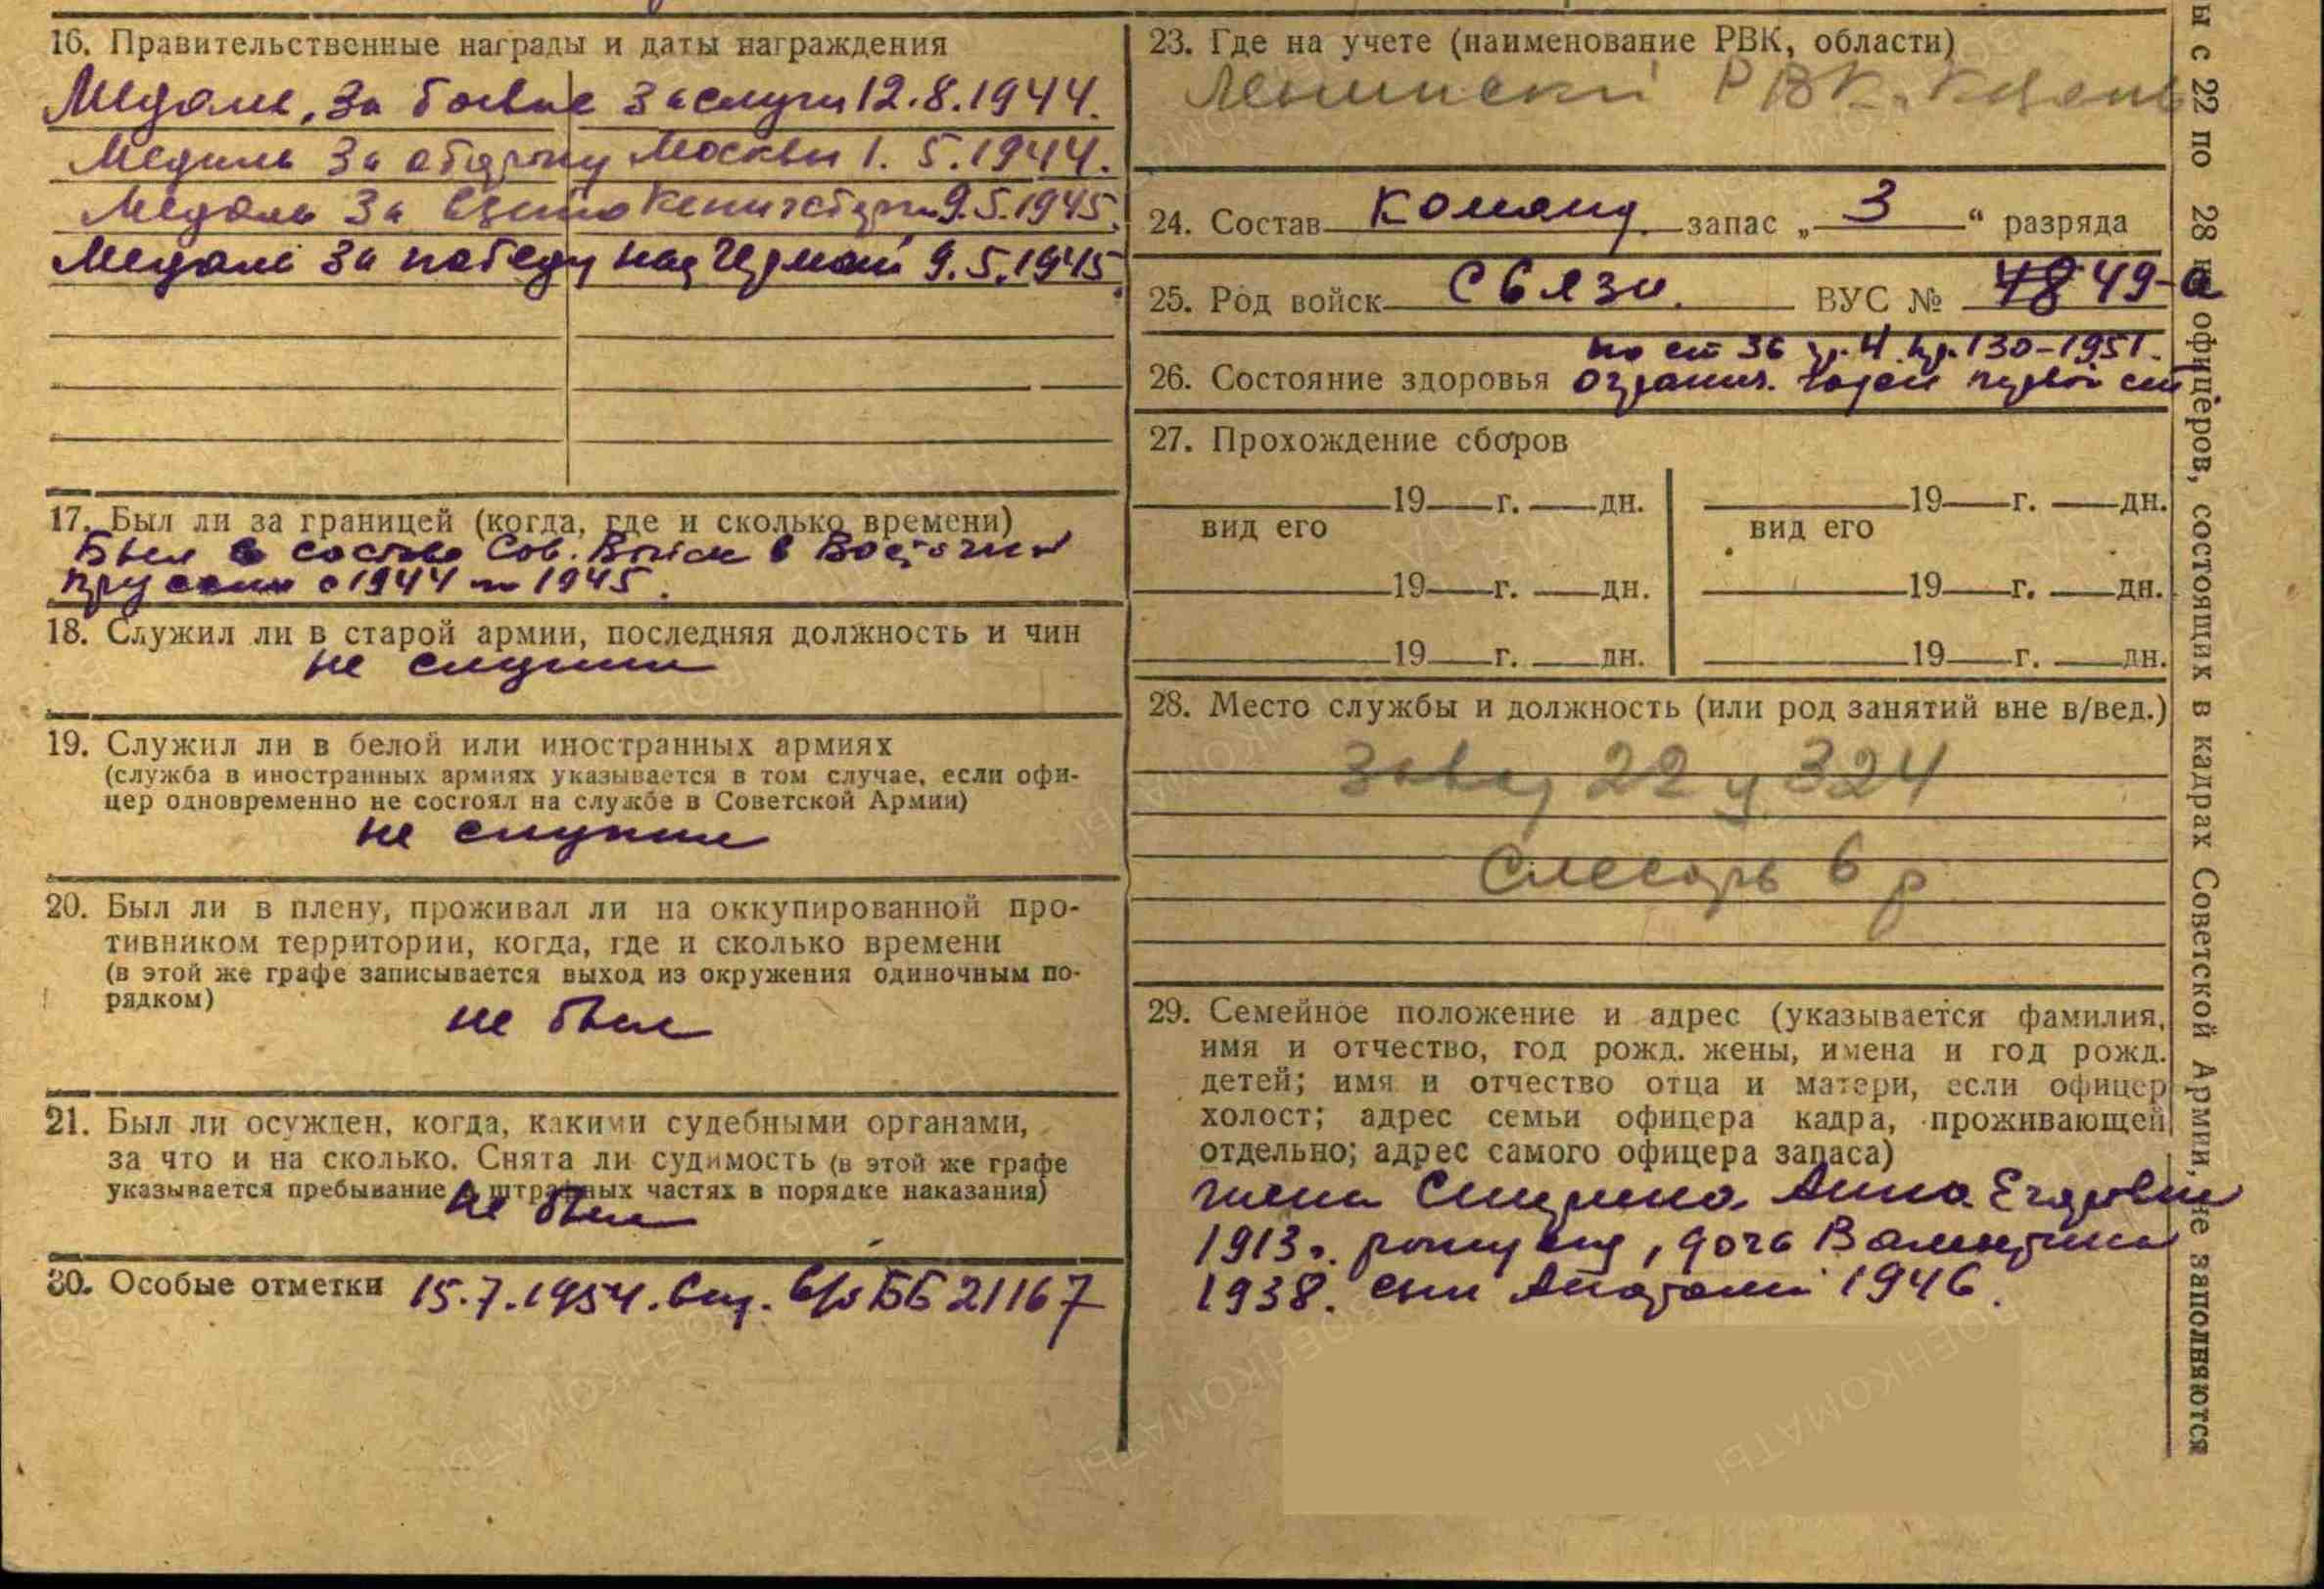 16. Правительственные награды и даты награждения
Медаль "За боевые заслуги 12.8.1944.
Медаль За оборону Москвы 1.5.1944.
Медаль За взятие Кенигсберга 9.5.1945.
Медаль За победу над Германией 9.5.1945.
17. Был ли за границей (когда, где и сколько времени)
Был в составе Сов. Войск в Восточной
Пруссии с 1944 по 1945.
18. Служил ли в старой армии, последняя должность и чин
не служил
19. Служил ли в белой или иностранных армиях
(служба в иностранных армиях указывается в том случае, если офи-
цер одновременно не состоял на службе в Советской Армии)
не служил
20. Был ли в плену, проживал ли на оккупированной про-
тивником территории, когда, где и сколько времени
(в этой же графе записывается выход из окружения одиночным по-
рядком)
не был
21. Был ли осужден, когда, какими судебными органами,
за что и на сколько. Снята ли судимость (в этой же графе
указывается пребывание в штрафных частях в порядке наказания)
не был
30. Особые отметки 15.7.1954. выд. в/б ББ 21167
23. Где на учете (наименование РВК, области)
Ленинский РВК г. Казань
24. Состав команд. запас „3“ разряда
25. Род войск связи. ВУС № 78 49-а
по ст 36 гр. 4 пр. 130-1951.
26. Состояние здоровья огранич. годен первой ст
27. Прохождение сборов
19 г. дн. 19 г. дн.
вид его вид его
19 г. дн. 19 г. дн.
19 г. дн. 19 г. дн.
28. Место службы и должность (или род занятий вне в/вед.)
Завод 22 ц 324
Слесарь 6 р
29. Семейное положение и адрес (указывается фамилия,
имя и отчество, год рожд. жены, имена и год рожд.
детей; имя и отчество отца и матери, если офицер
холост; адрес семьи офицера кадра, проживающей
отдельно; адрес самого офицера запаса)
жена Анна Егоровна
1913г. рожден, дочь Валентина
1938. сын Анатолий 1946.
ы с 22 по 28 офицеров, состоящих в кадрах Советской Армии, не заполняются
ВОЕНКОМАТЫ